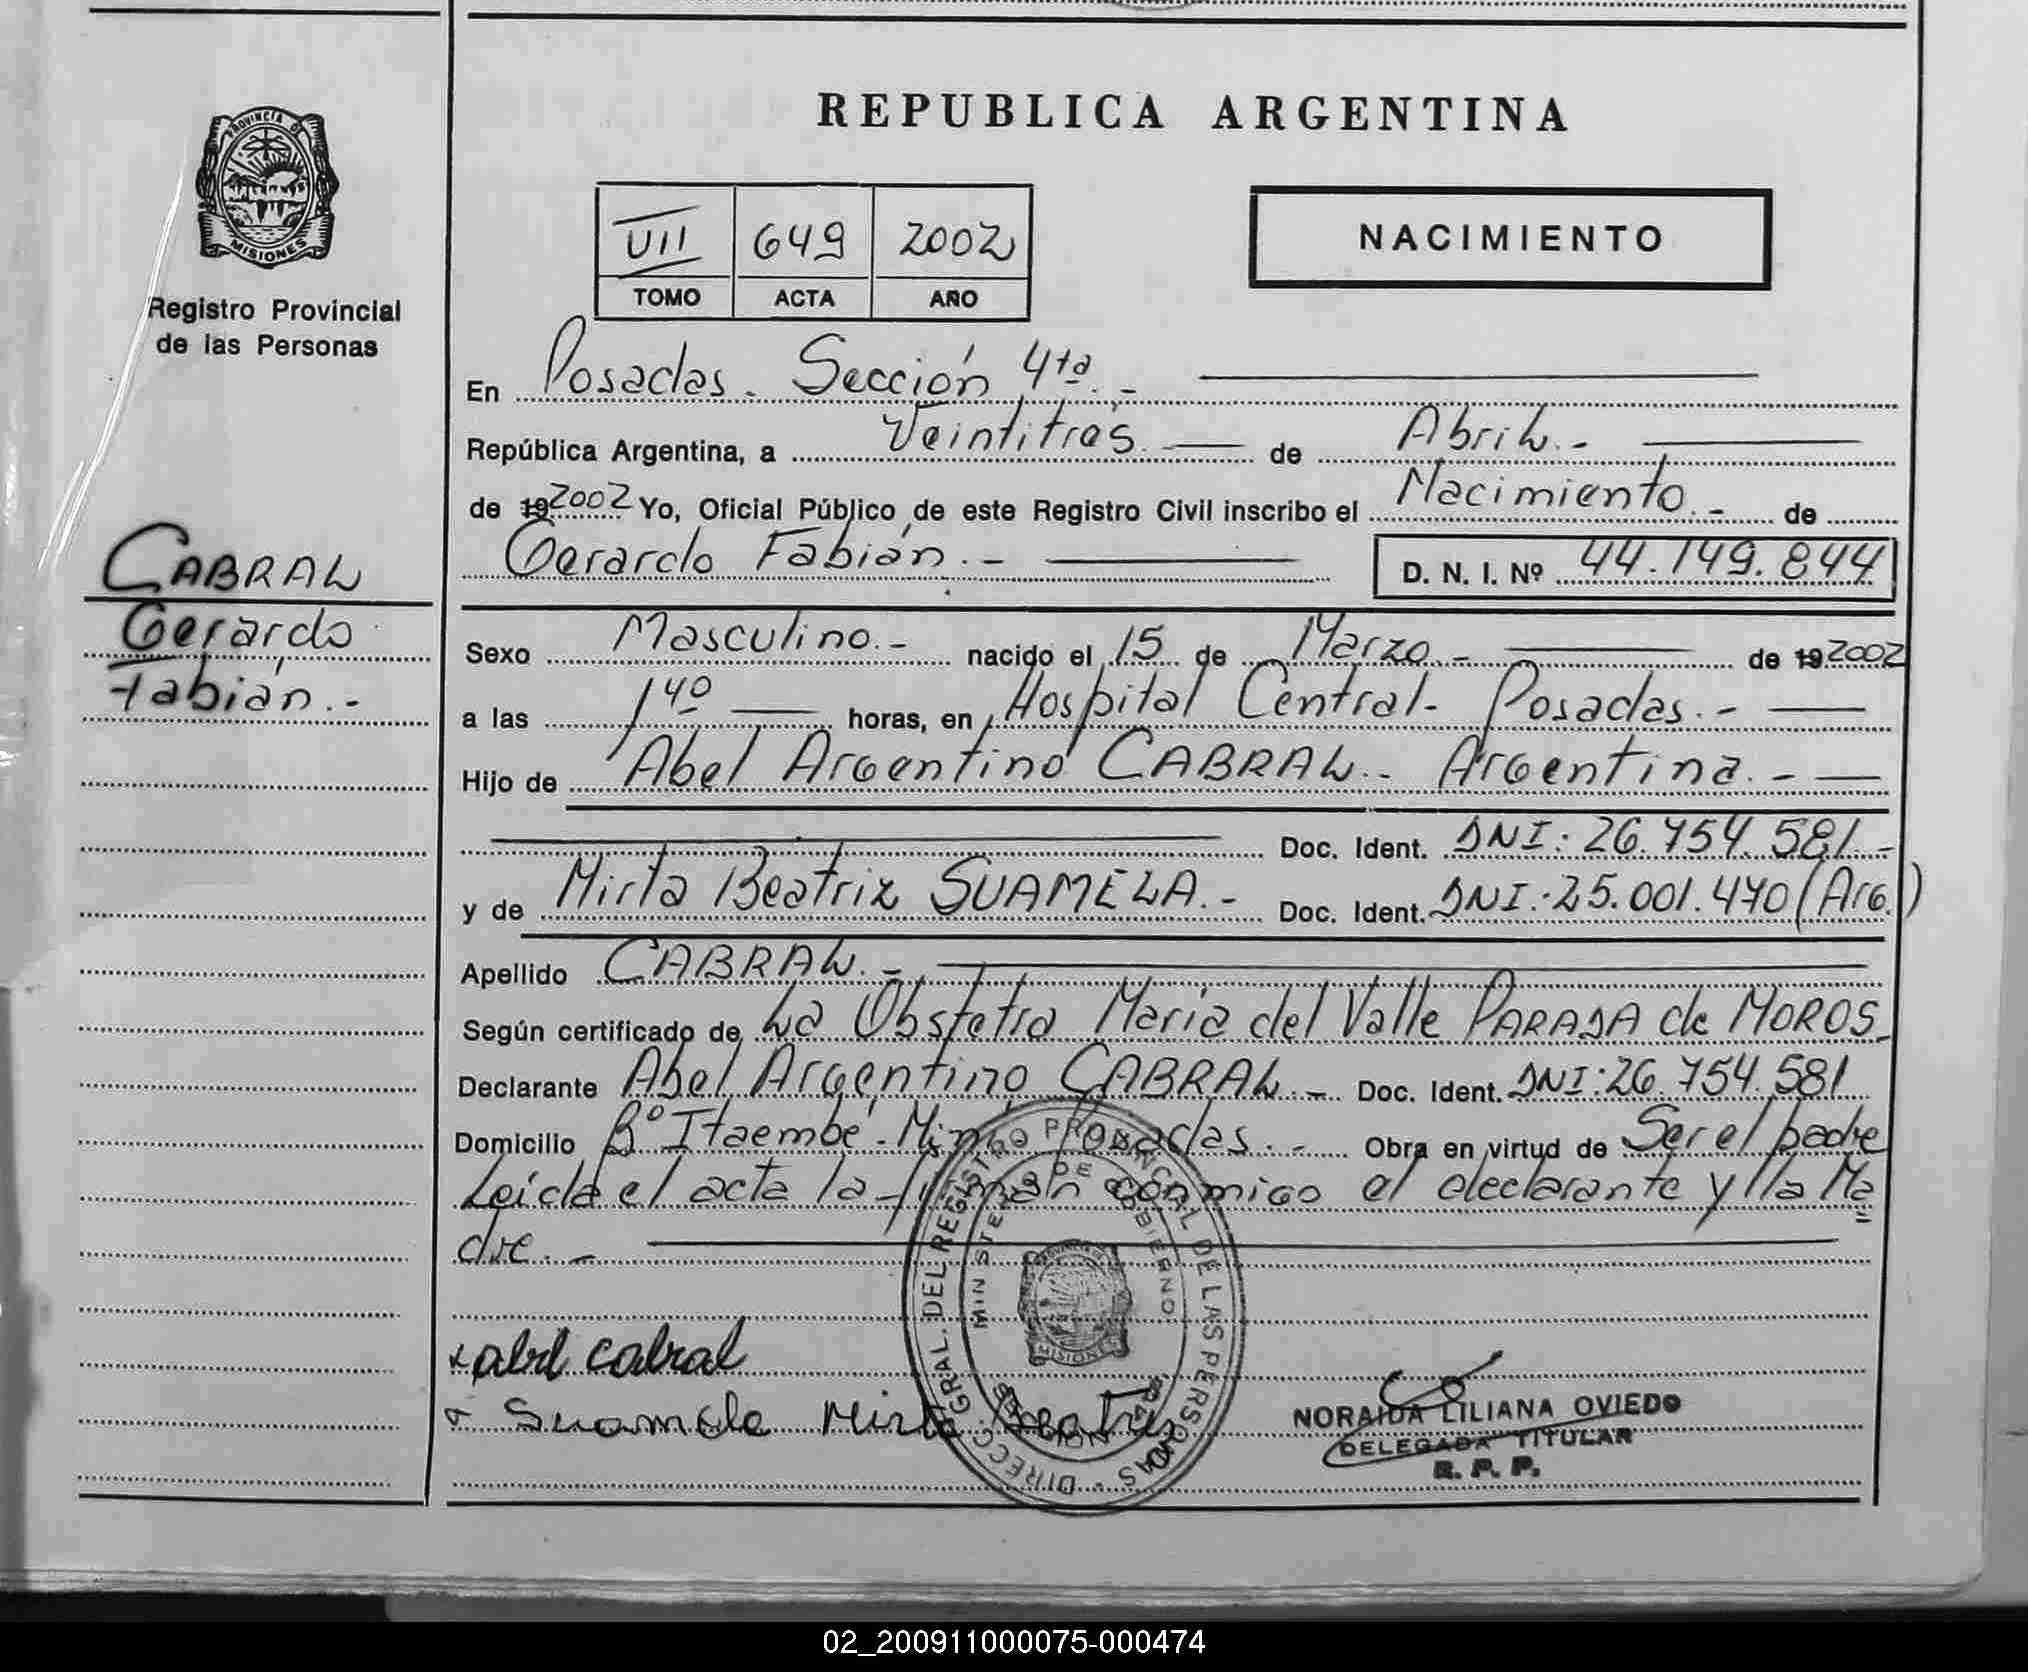 REPUBLICA ARGENTINA
PROVINCIA DE
MISIONES
Registro Provincial
de las Personas
VII 649 2002
TOMO ACTA AÑO
NACIMIENTO
En Posadas. Sección 4ta.-
República Argentina, a Veintitrés. de Abril.-
de 19 2002 Yo, Oficial Público de este Registro Civil inscribo el Nacimiento.- de
Gerardo Fabián.- D. N. I. Nº 44.149.844
CABRAL
Gerardo
Fabián.-
Sexo Masculino.- nacido el 15 de Marzo.- de 19 2002
a las 1 40 horas, en Hospital Central- Posadas.-
Hijo de Abel Argentino CABRAL.- Argentina.-
Doc. Ident. DNI: 26.754.581.-
y de Mirta Beatriz SUAMELA.- Doc. Ident. DNI: 25.001.470 (Arg.)
Apellido CABRAL.-
Según certificado de La Obstetra María del Valle PARADA de MOROS.
Declarante Abel Argentino CABRAL.- Doc. Ident. DNI: 26.754.581
Domicilio Bº Itaembé-Miní Posadas.- Obra en virtud de Ser el padre
Leída el acta la firman conmigo el declarante y la Ma
dre.-
DIRECC. GRAL. DEL REGISTRO PROVINCIAL DE LAS PERSONAS
MINISTERIO DE GOBIERNO
MISIONES
abel cabral
Suamela Mirta Beatriz
NORAIDA LILIANA OVIEDO
DELEGADA TITULAR
R. P. P.
02_200911000075-000474